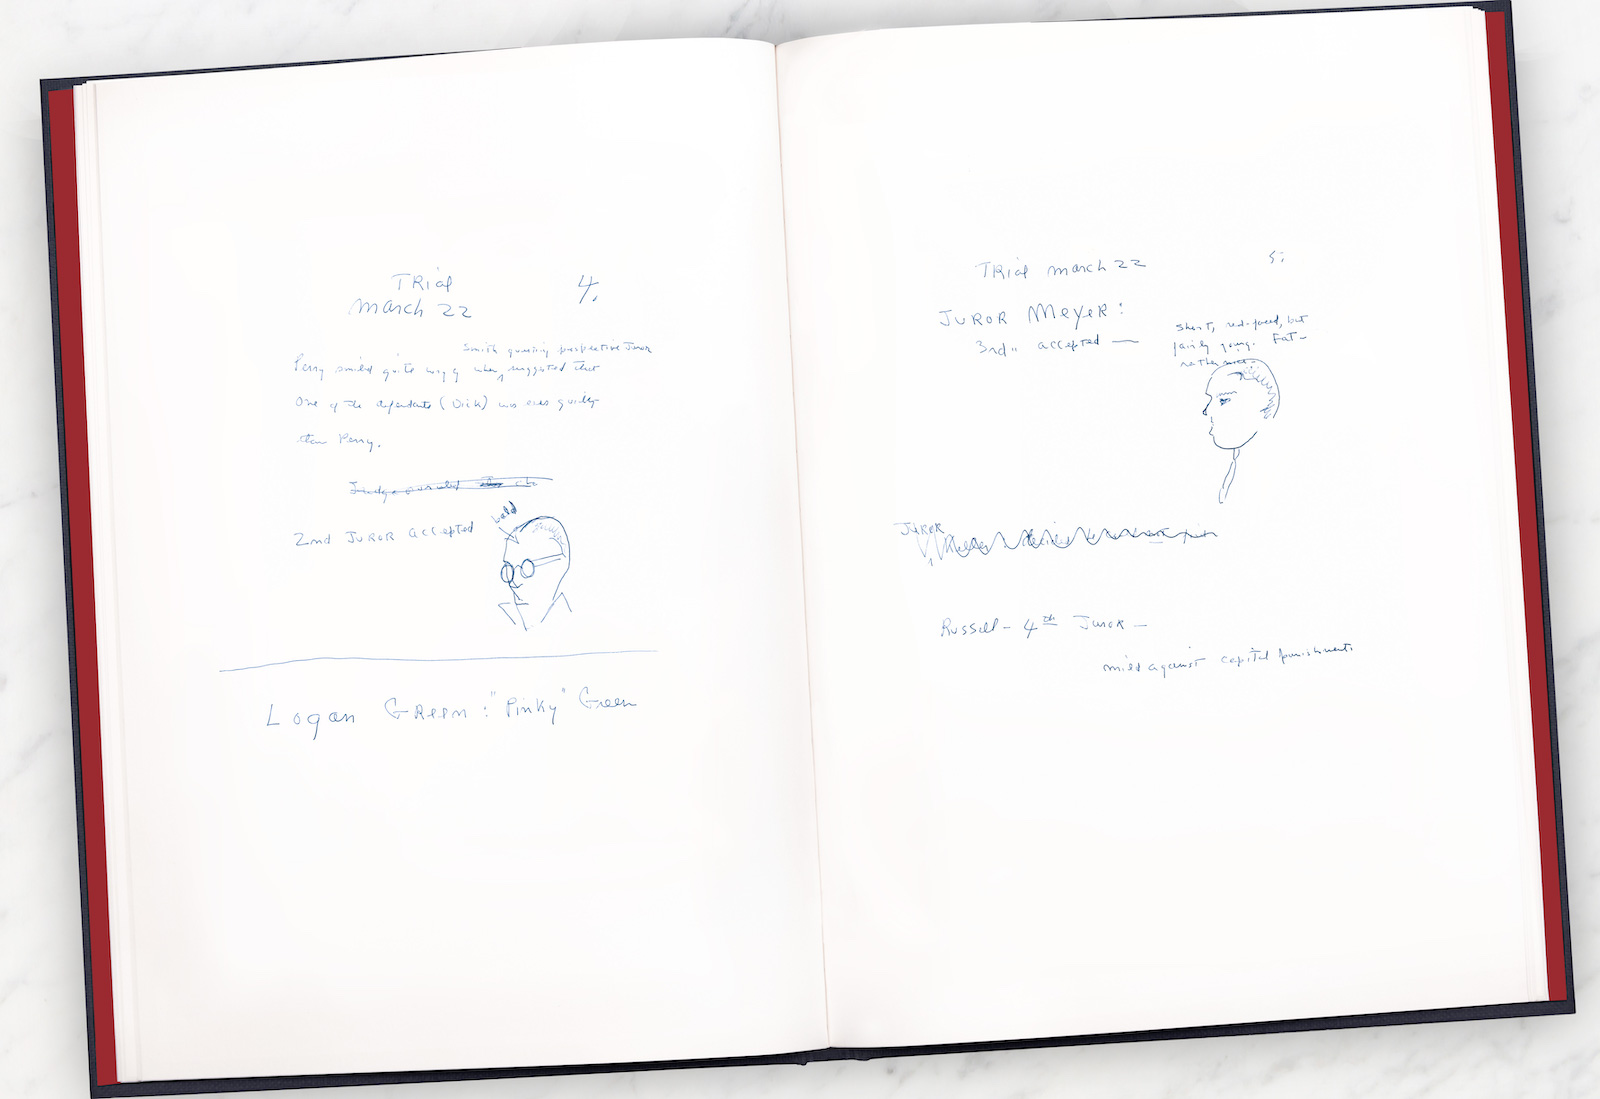 TRial
March 22
4.
Smith quering prospective Juror
Perry smiled quite wryly when suggested that
One of the defendants (Dick) was more guilty
than Perry.
2nd JUROR accepted
bald
Logan GReen : "Pinky" Green
TRial march 22
5.
JUROR Meyer:
3rd accepted —
short, red-faced, but
fairly young. Fat—
rather
JUROR
Russell - 4th Juror —
mild against capital punishment.